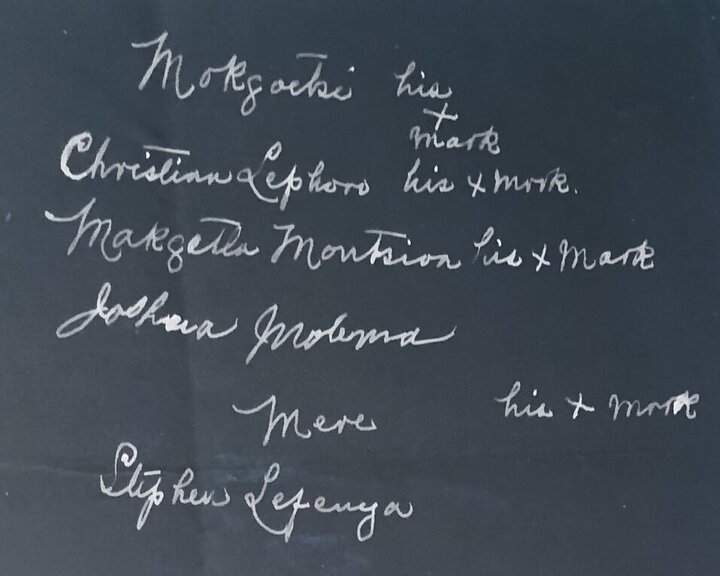 Mokgoetsi his
x
mark
Christian Lephoro his x mark.
Makgetla Montsioa his x mark
Joshua Molema
Mere his x mark
Stephen Lefenya